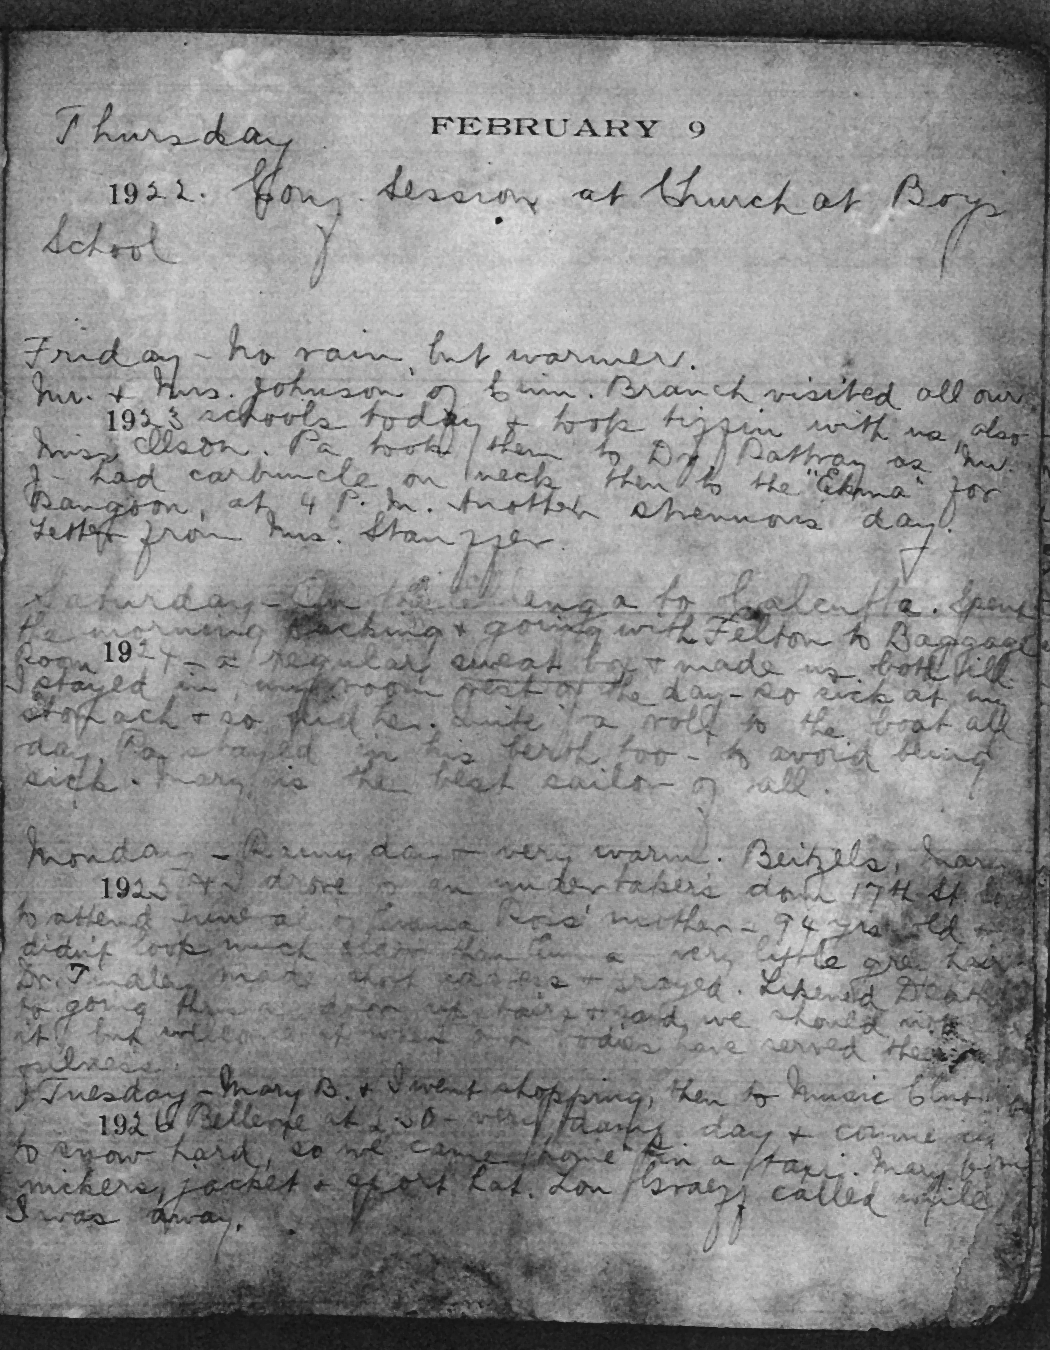 Thursday FEBRUARY 9
1922. Session at Church at Boys
School
Friday - No rain, but warmer.
Mr. & Mrs. Johnson of Cinn. Branch visited all our
1923 schools today & took tiffin with us, also
Miss Olson. Pa took them to Dr. Pattray as Mr.
J - had carbuncle on neck, then to the "Ekma" for
Rangoon, at 4 P.M. Another strenuous day.
Letter from Mrs. Stauffer.
Saturday - On the to Calcutta. Spent
the morning packing & going with Felton to Baggage
Room 1924 - a regular sweat box & made us both ill.
I stayed in my room rest of the day - so sick at my
stomach & so did he. Quite a roll to the boat all
day. Pa stayed in his berth too - to avoid being
sick. Mary is the best sailor of all.
Monday - Rainy day - very warm. Beitzels, Mary
1925 & I drove in an undertaker's down 17th St.
to attend funeral of mother - 94 yrs old -
didn't look much older than a very little grey hair
Dr. made short address & prayed. Likened Death
to going thru a door upstairs & said we should not
it, but welcome it when our bodies have served their
Tuesday - Mary B. & I went shopping, then to Music Club
1926 Bellevue at 2.30 - very day &
to snow hard, so we came home in a taxi. Mary
nickers, jacket & sport hat. Lou called while
I was away.